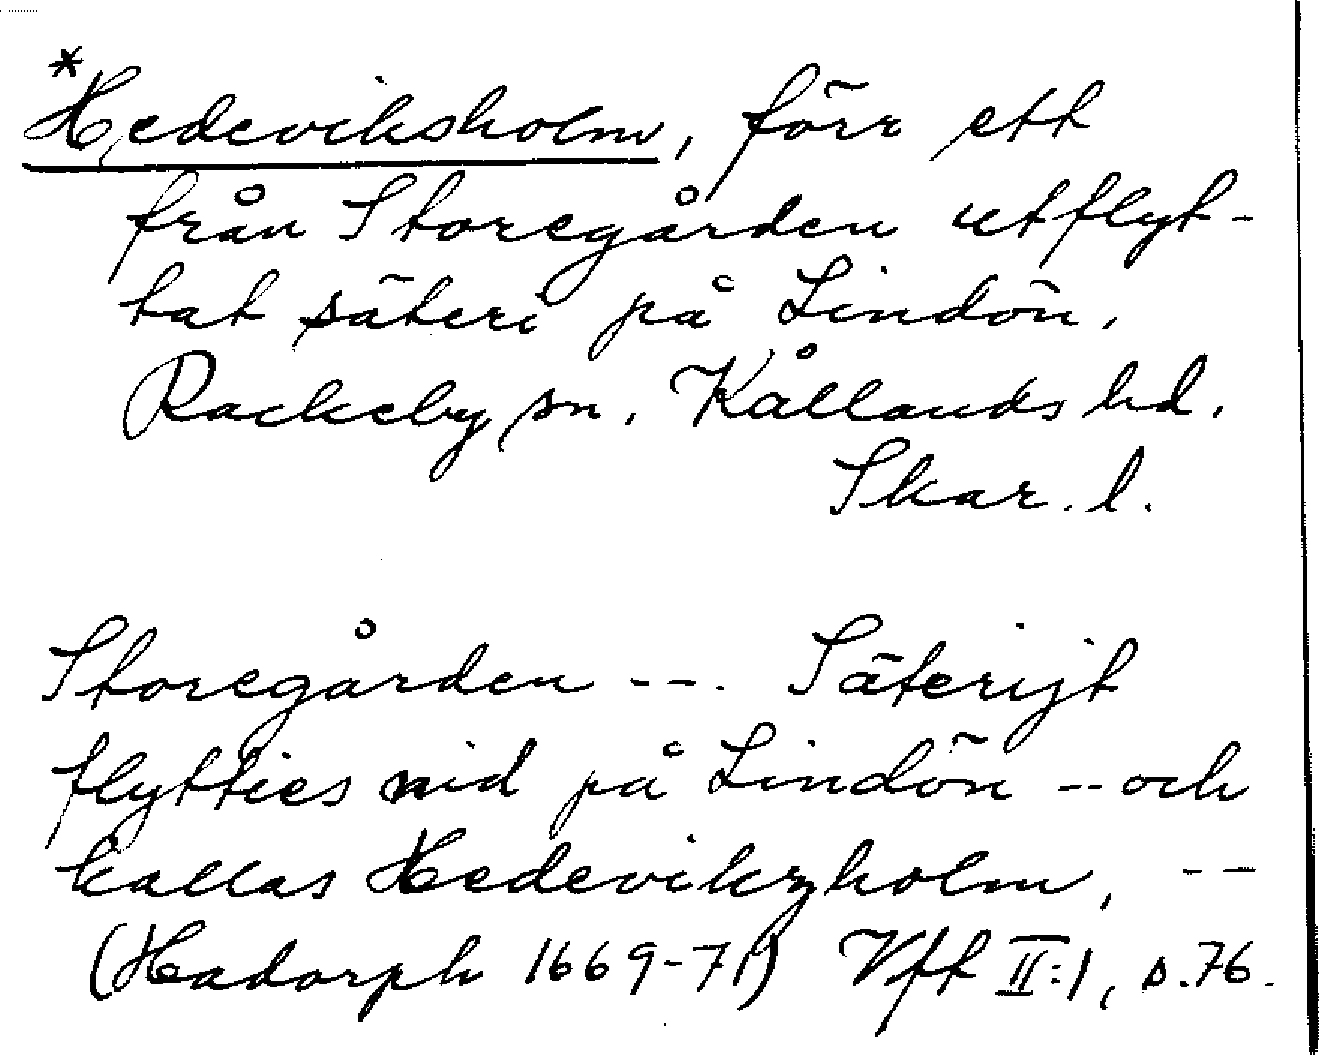 *Hedeviksholm, förr ett
från Storegården utflyt-
tat säteri på Lindön,
Rackeby sn. Kållands hd.
Skar. l.
Storegården --. Säterijt
flytties nid på Lindön -- och
kallas Hedevikzholm, --
(Hadorph 1669-71) Vft II:1, s.76.